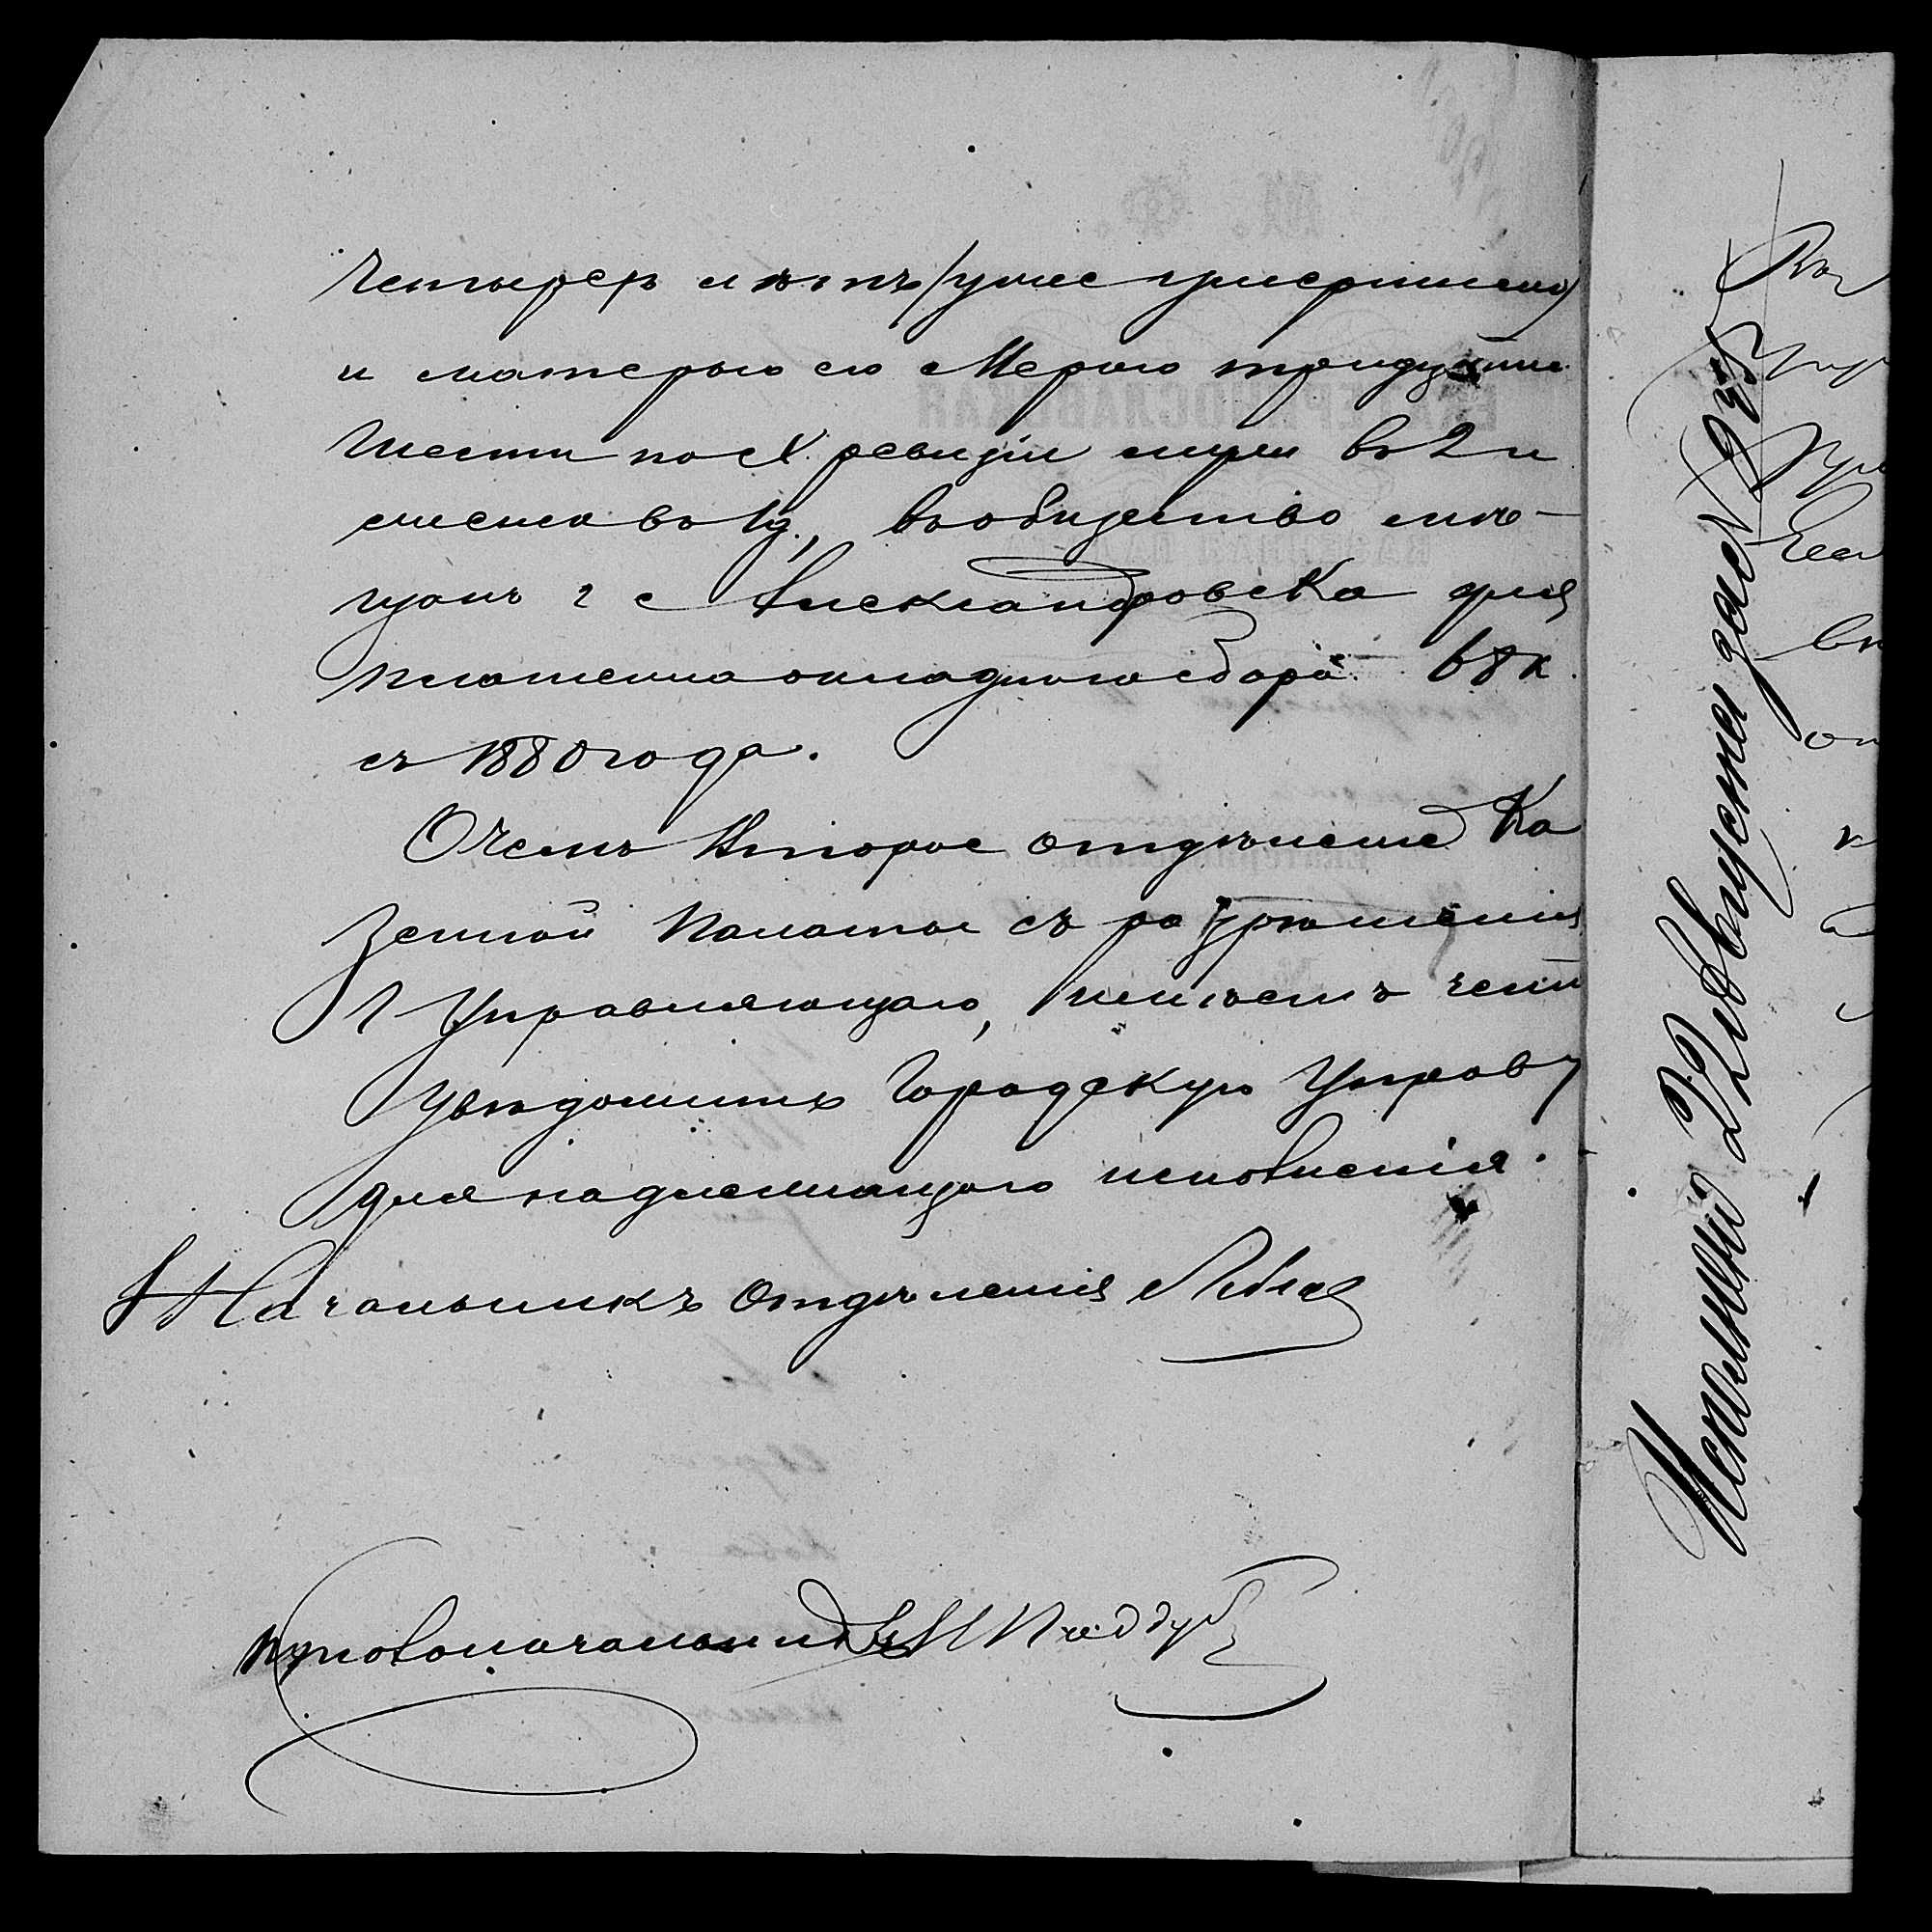 четырехъ лѣтъ (уже умершимъ)
и матерью его Мерою тридцати
шести по Х ревизіи муж въ 2 и
женск въ 1 д., въ общество мѣ-
щанъ г Александровска для
платежа окладнаго сбора 68 к.
съ 1880 года.
О чемъ Второе отдѣленіе Ка
зенной Палаты съ разрѣшенія
Г Управляющаго, имѣетъ честь
увѣдомить Городскую Управу
для надлежащаго исполненія.
Начальникъ Отдѣленія
Столоначальникъ
Исполнено 22 Августа за № 925